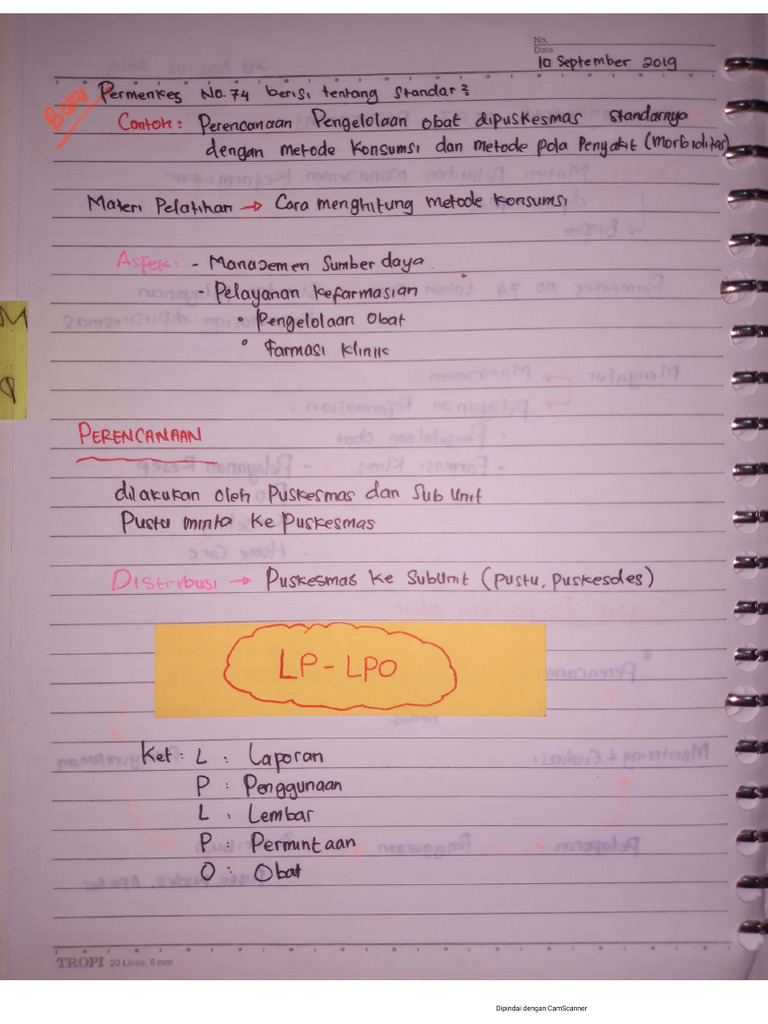 No.
Date
10 September 2019
Permenkes No. 74 berisi tentang standar²
Contoh: Perencanaan Pengelolaan obat dipuskesmas standarnya
dengan metode konsumsi dan metode pola Penyakit (morbiditas)
Materi Pelatihan → Cara menghitung metode konsumsi
Aspek: - Manajemen Sumber daya
- Pelayanan kefarmasian
• Pengelolaan Obat
• Farmasi Klinik
PERENCANAAN
dilakukan oleh Puskesmas dan Sub Unit
Pustu minta ke Puskesmas
Distribusi → Puskesmas ke SubUnit (Pustu, Puskesdes)
LP-LPO
Ket: L : Laporan
P : Penggunaan
L : Lembar
P : Permintaan
O : Obat
TROPI 30 Lines, 8 mm
Dipindai dengan CamScanner